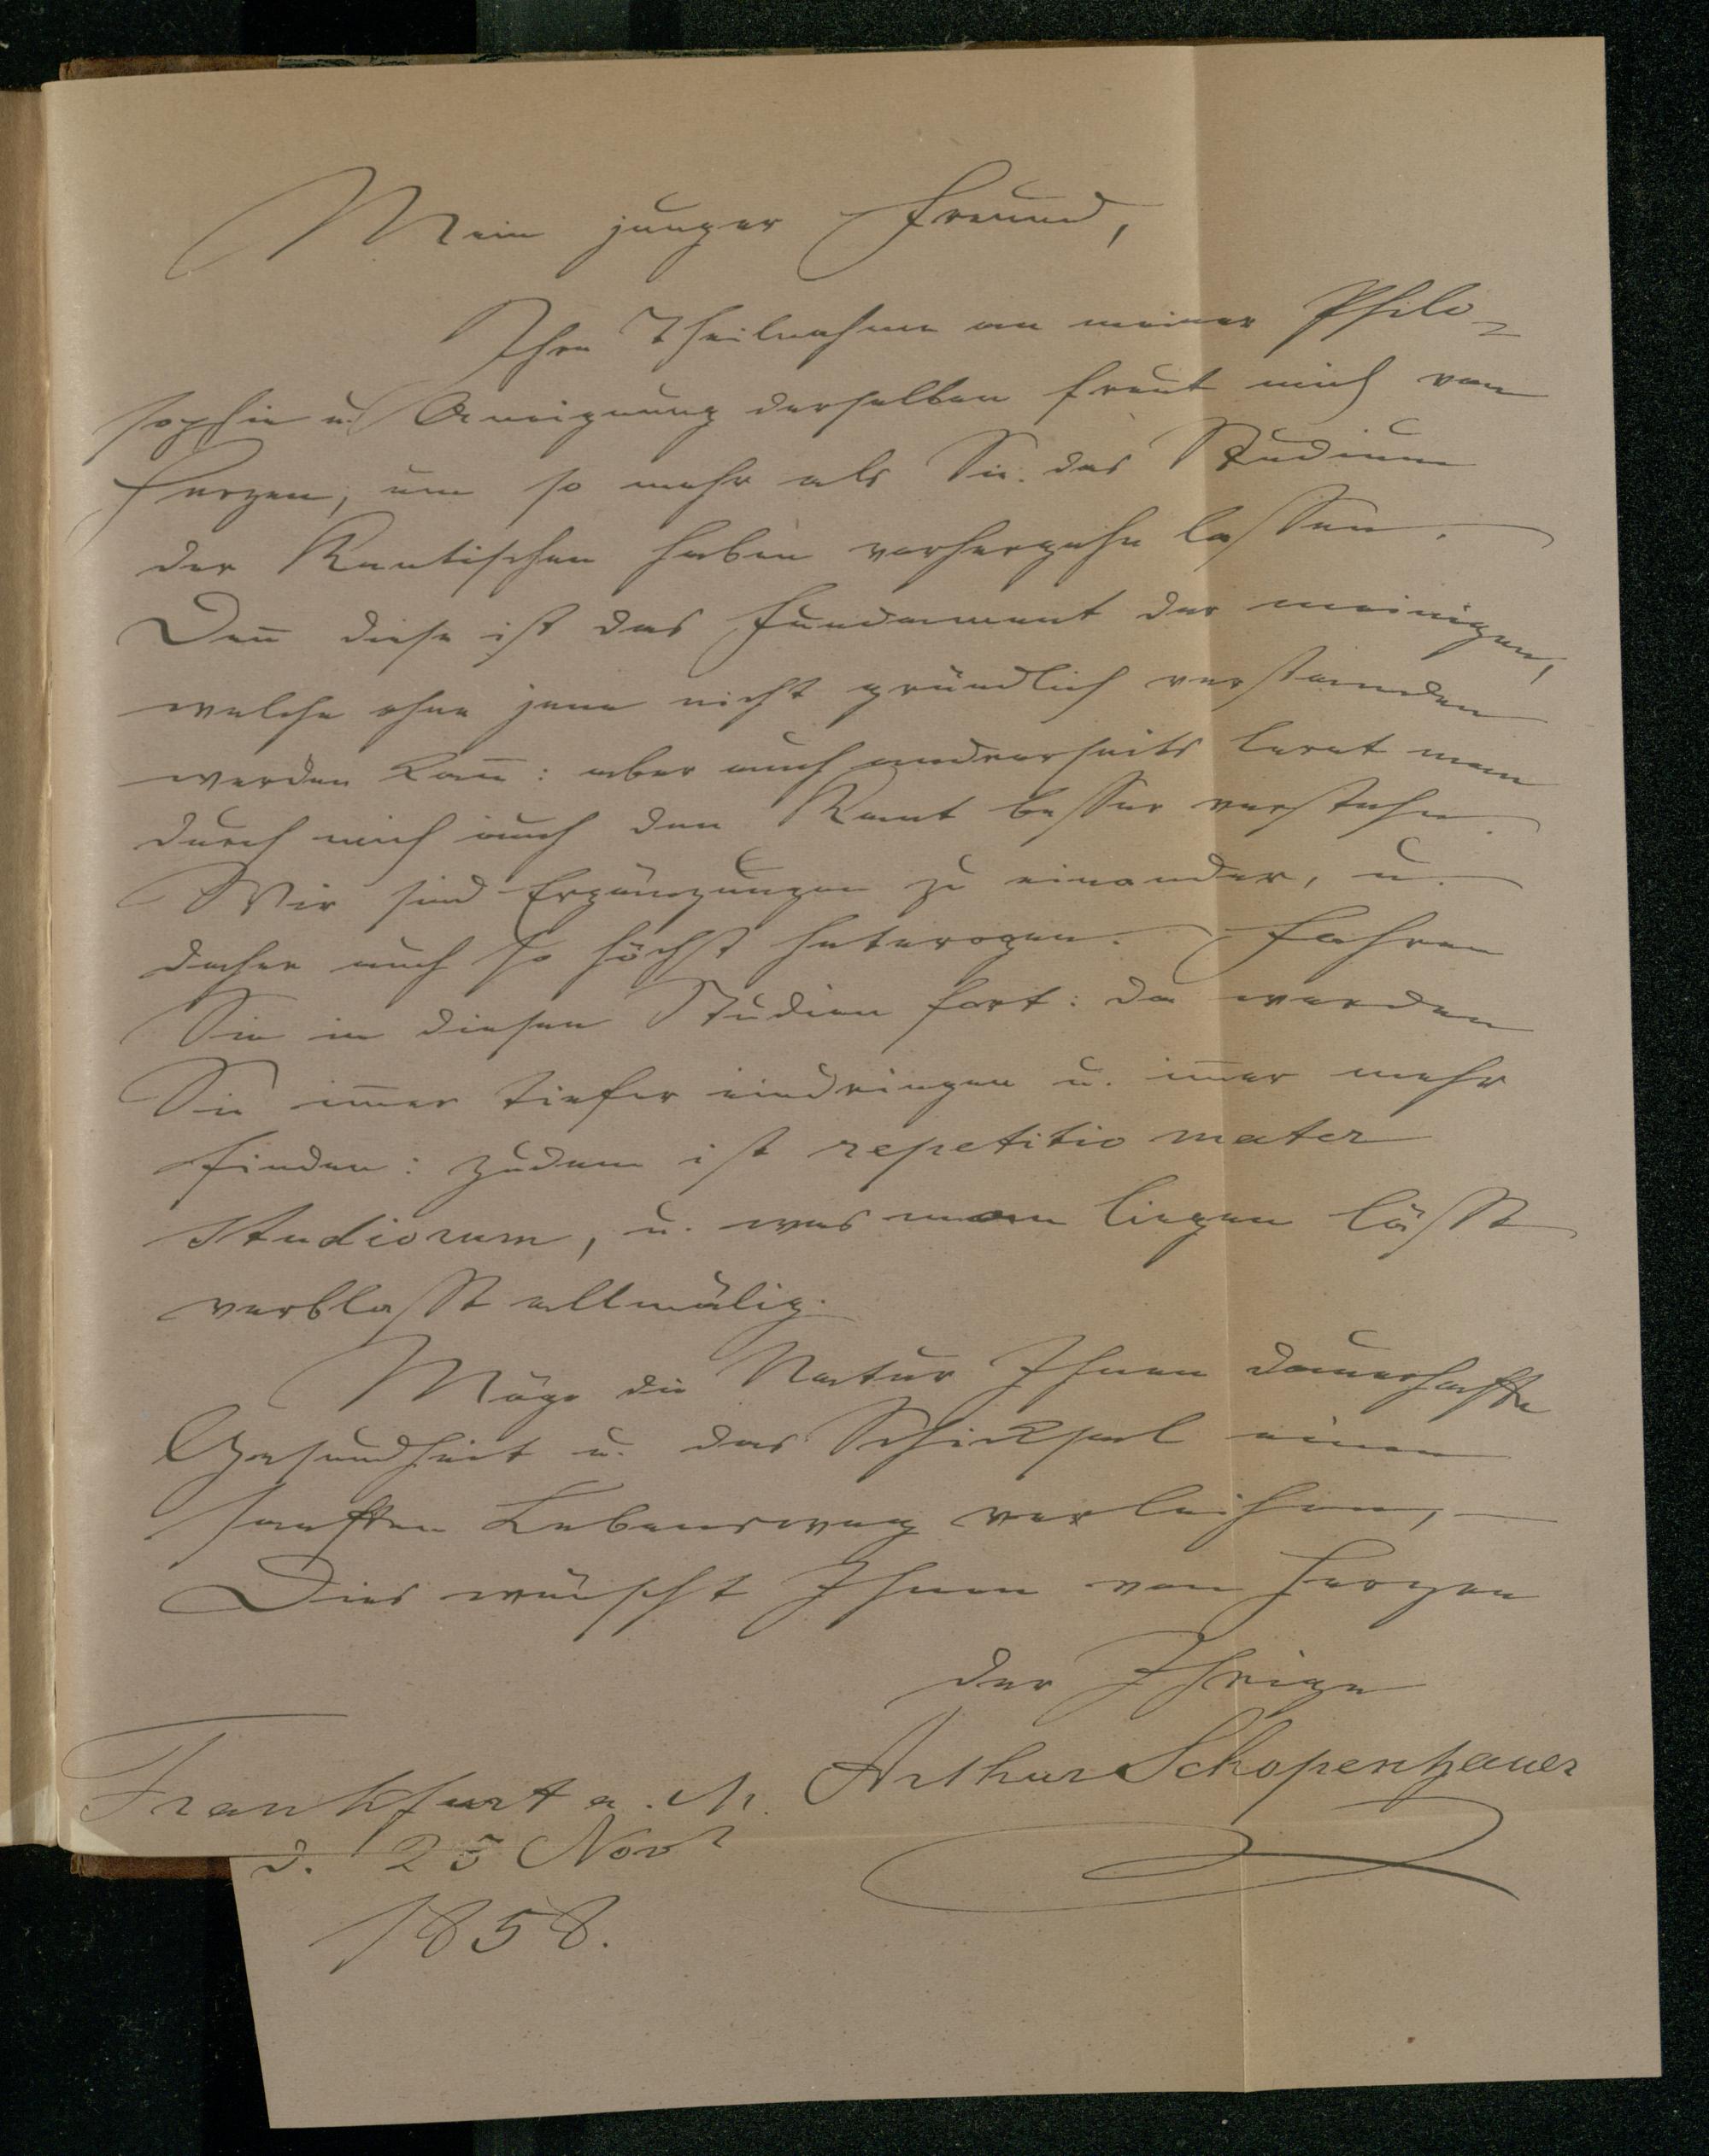 Mein junger Freund,
Ihre Theilnahme an meiner Philo-
sophie u. Aneignung derselben freut mich von
Herzen, um so mehr als Sie das Studium
der Kantischen haben vorhergehn lassen.
Den̄ diese ist das Fundament der meinigen,
welche ohne jene nicht gründlich verstanden
werden kan̄: aber auch andrerseits lernt man
durch mich auch den Kant besser verstehn.
Wir sind Ergänzungen zu einander, u.
daher auch so höchst heterogen. Fahren
Sie in diesen Studien fort: da werden
Sie im̄er tiefer eindringen u. im̄er mehr
finden: zudem ist repetitio mater
studiorum, u. was man liegen läßt
verblaßt allmälig.
Möge die Natur Ihnen dauerhafte
Gesundheit u. das Schicksal einen
sanften Lebensweg verleihen,
Dies wünscht Ihnen von Herzen
der Ihrige
Arthur Schopenhauer
Frankfurt a. M.
d. 25 Novr
1858.